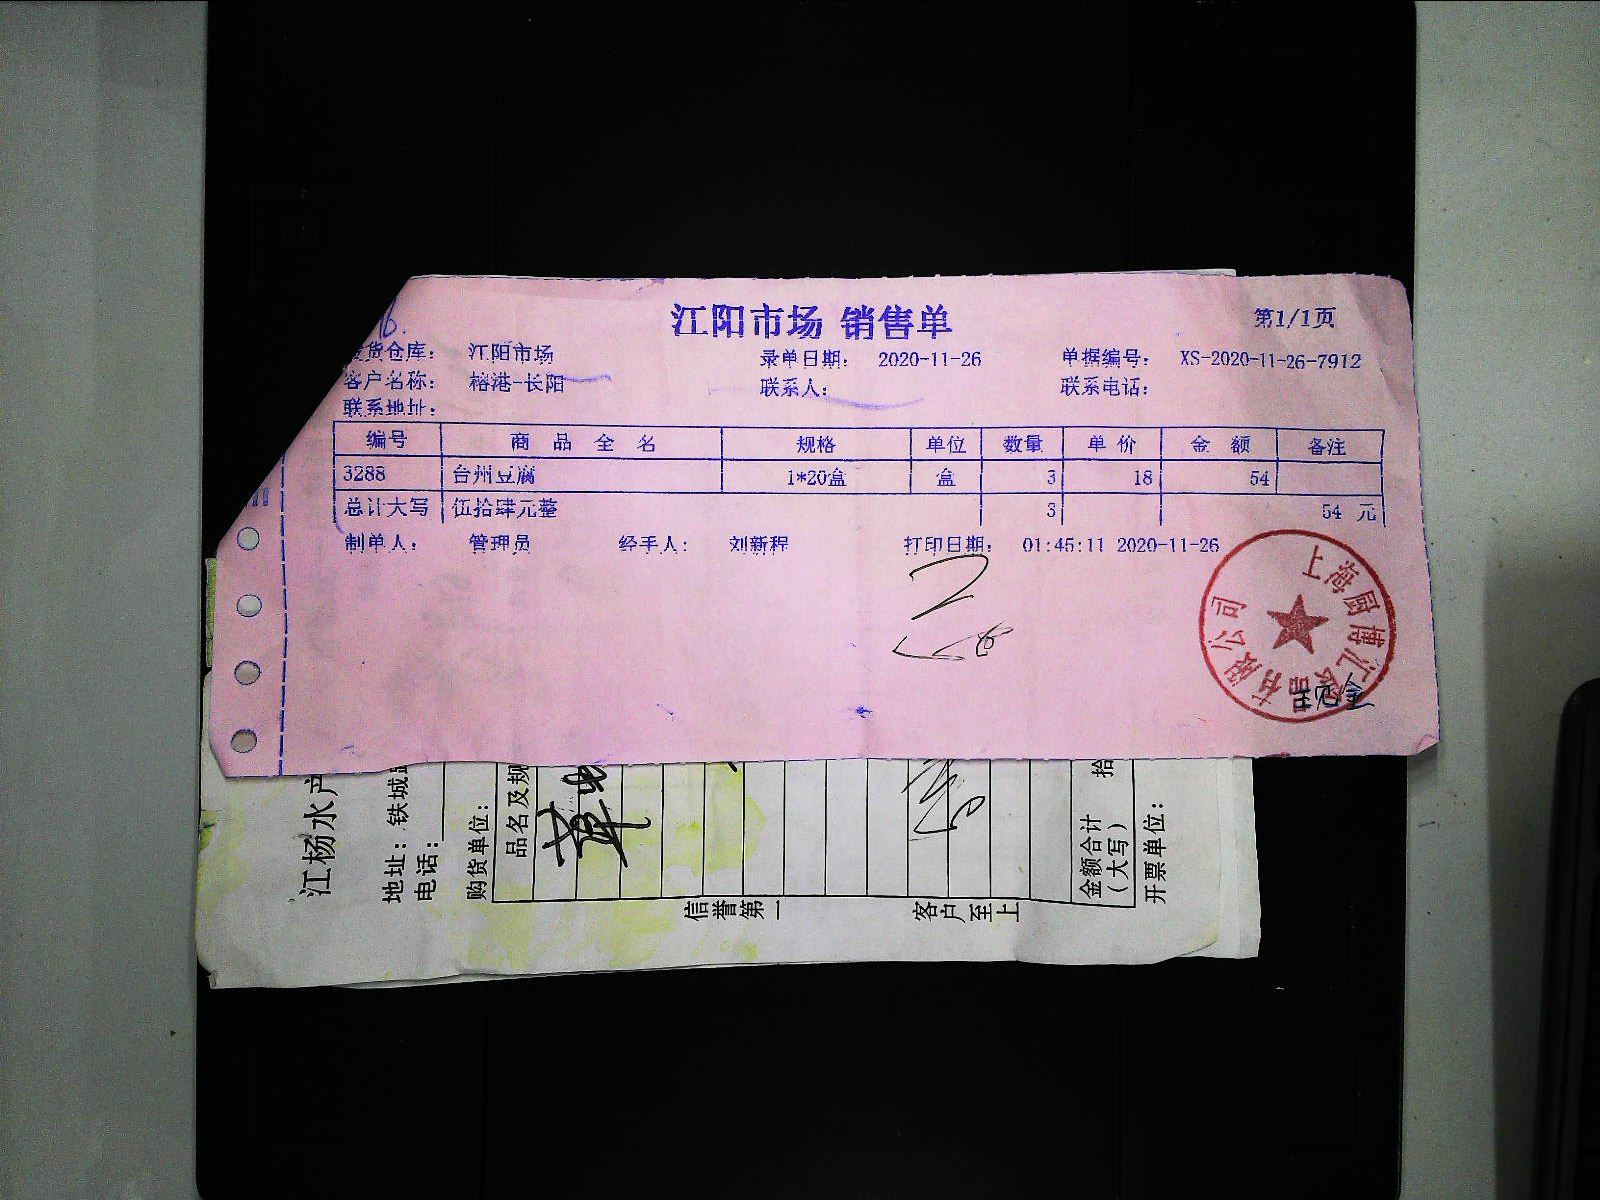 江阳市场 销售单
第1/1页
货仓库: 江阳市场 录单日期: 2020-11-26 单据编号: XS-2020-11-26-7912
客户名称: 榕港-长阳 联系人: 联系电话:
联系地址:
编号 商品全名 规格 单位 数量 单价 金额 备注
3288 台州豆腐 1*20盒 盒 3 18 54
总计大写 伍拾肆元整 3 54 元
制单人: 管理员 经手人: 刘新程 打印日期: 01:45:11 2020-11-26
上海厨博汇 有限公司
江杨水产
地址: 铁城
电话:
购货单位:
品名及规
信誉第一
客户至上
金额合计
(大写)
拾
开票单位: